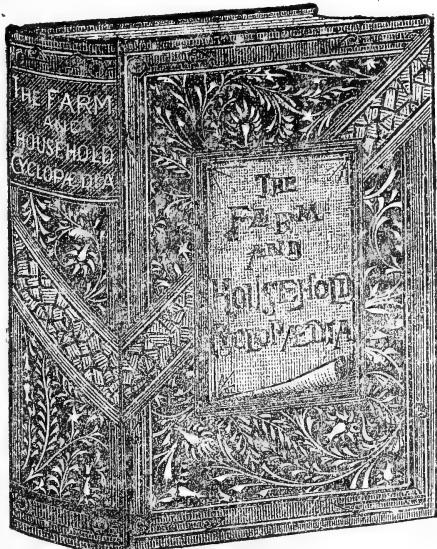 THE FARM
AND
HOUSEHOLD
CYCLOPÆDIA
THE
FARM
AND
HOUSEHOLD
CYCLOPÆDIA